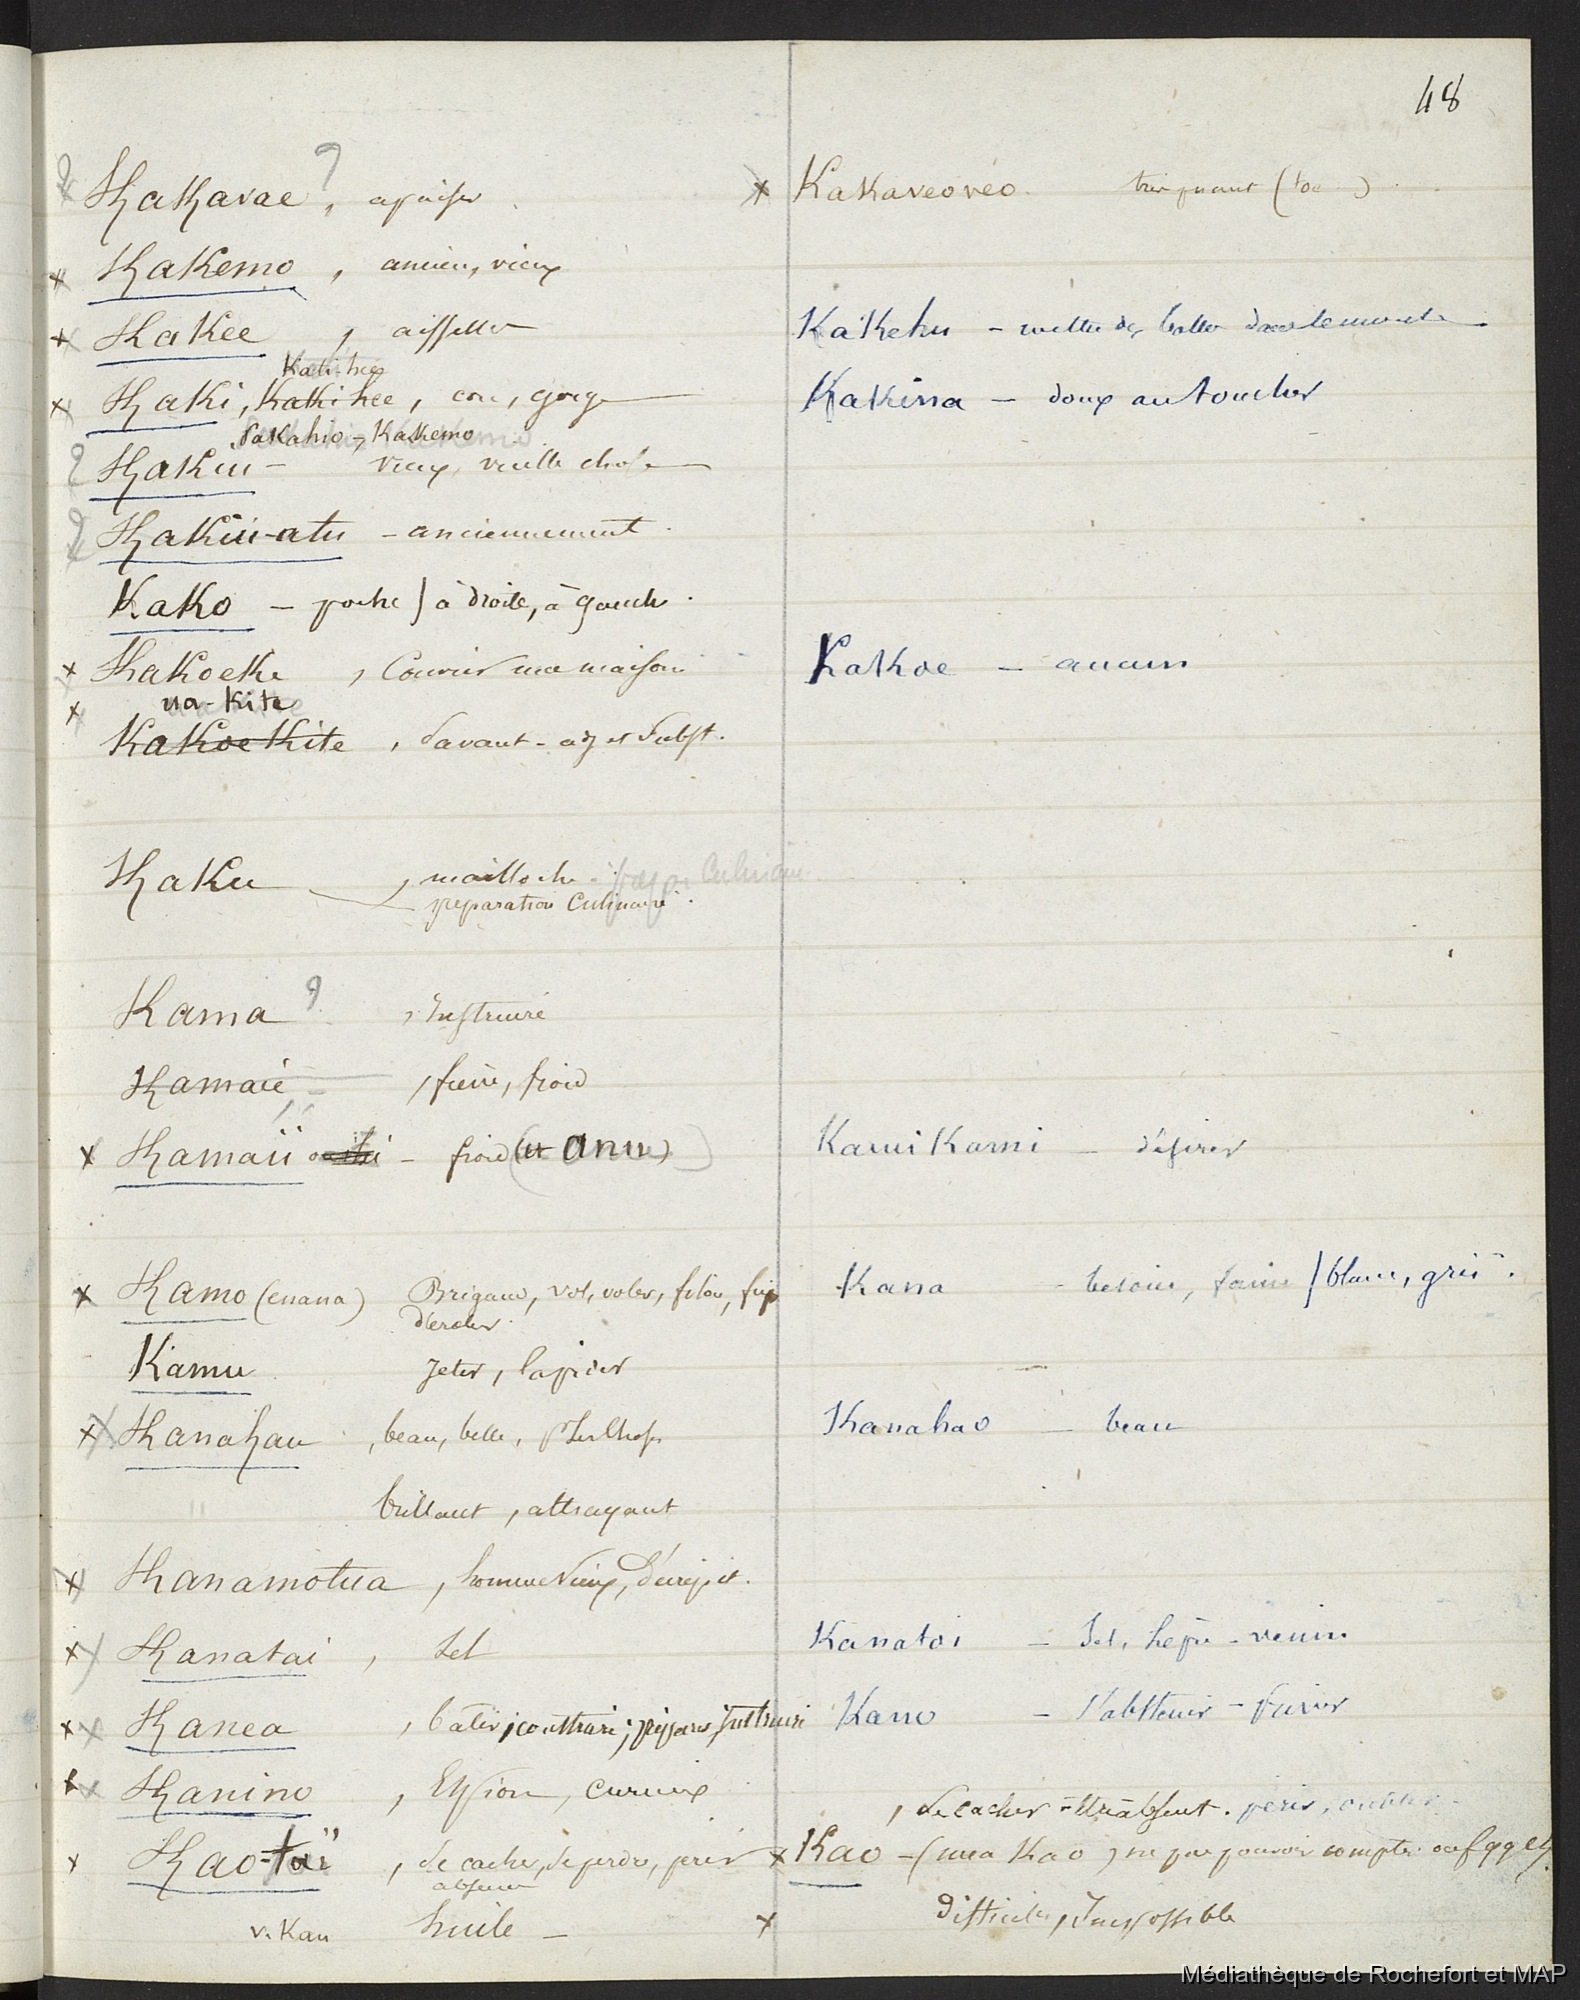 48
Kakavae ?, apaiser
Kakemo, ancien, vieux
Kakee, aisselle
Kati-hee
Kaki, Kakihee, cou, gorge
Kakahio - Kakemo
Kakiu - vieux, vieille chose
Kakiü-atu - anciennement
Kako - poche / à droite, à gauche.
Kakoeke, Couvrir une maison
ua-Kite
Kakoe Kite, Savant - adj et Subst.
Kaku, mailloche
préparation Culinaire.
Kama ?, Instruire
Kamaié, froid
Kamaii - froid (et anu)
Kamo (enana) Brigand, vol, voler, filou,
dérober.
Kamu Jeter, lapider
Kanahau, beau, belle,
brillant, attrayant
Kanamotua, homme vieux, décrépit.
Kanatai, Sel
Kanea, bâtir, construire, Instruire
Kanino, curieux
Kao-taï, Se cacher, se perdre, périr
absence
v. Kau huile -
Kakaveoveo
Kakehu -
Kakina - doux au toucher
Kakoe - aucun
KamiKami - désirer
Kana - besoin, / blanc, gris.
Kanahao - beau
Kanatai - Sel, venin
Kano - S'abstenir -
, Se cacher - être absent. périr, oublier -
Kao - (mea Kao) ne pas pouvoir compter
Difficile, Impossible
Médiathèque de Rochefort et MAP